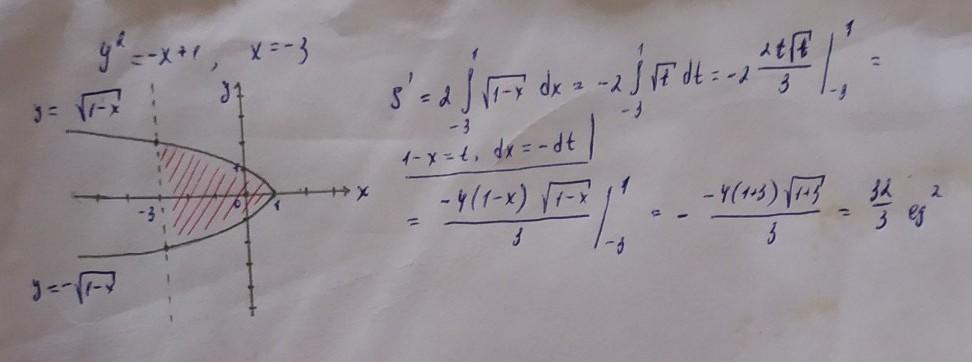 y² = -x+1, x = -3
y = √(1-x)
y
x
-3
0
1
y = -√(1-x)
S = 2 ∫₋₃¹ √(1-x) dx = -2 ∫₋₃¹ √t dt = -2 (2t√t)/3 |₋₃¹ =
1-x = t, dx = -dt
= (-4(1-x)√(1-x))/3 |₋₃¹ = - (-4(1+3)√(1+3))/3 = 32/3 eg²